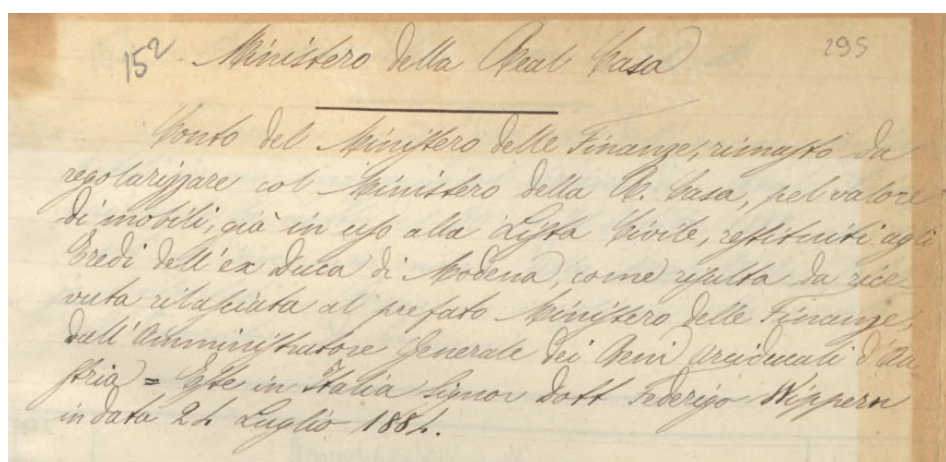 152 Ministero della Real Casa 295
Conto del Ministero delle Finanze, rimasto da
regolarizzare col Ministero della R. Casa, pel valore
di mobili, già in uso alla Lista Civile, restituiti agli
Eredi dell'ex Duca di Modena, come risulta da rice-
vuta rilasciata al prefato Ministero delle Finanze,
dall'Amministratore Generale dei Beni Arciducali d'Au-
stria = Este in Italia Signor Dott Federigo Nippern
in data 24 Luglio 1884.